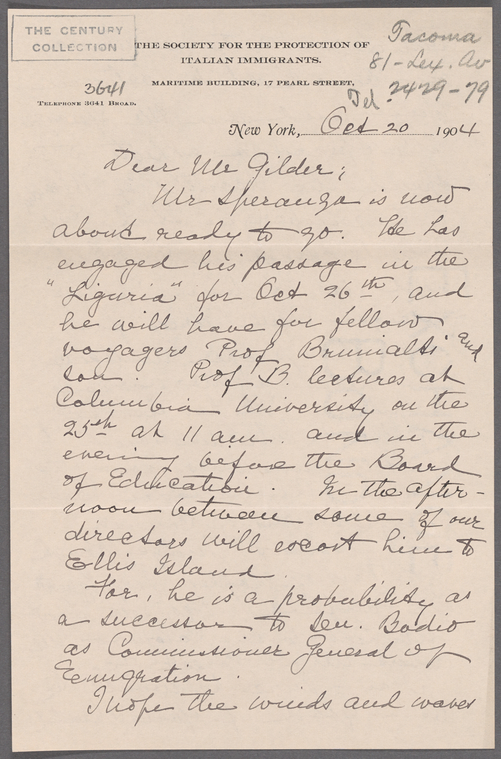 THE CENTURY
COLLECTION
THE SOCIETY FOR THE PROTECTION OF
ITALIAN IMMIGRANTS.
MARITIME BUILDING, 17 PEARL STREET,
Tacoma
81-Lex. Av
Tel. 2429-79
3641
TELEPHONE 3641 BROAD.
New York, Oct 20 1904
Dear Mr Gilder;
Mr Speranza is now
about ready to go. He has
engaged his passage in the
"Liguria" for Oct 26th, and
he will have for fellow
voyagers Prof Brunialti and
son. Prof B. lectures at
Columbia University on the
25th at 11 am. and in the
evening before the Board
of Education. In the after-
noon between some of our
directors will escort him to
Ellis Island.
For, he is a probability as
a successor to Sen. Bodio
as Commissioner General of
Emigration.
I hope the winds and waves